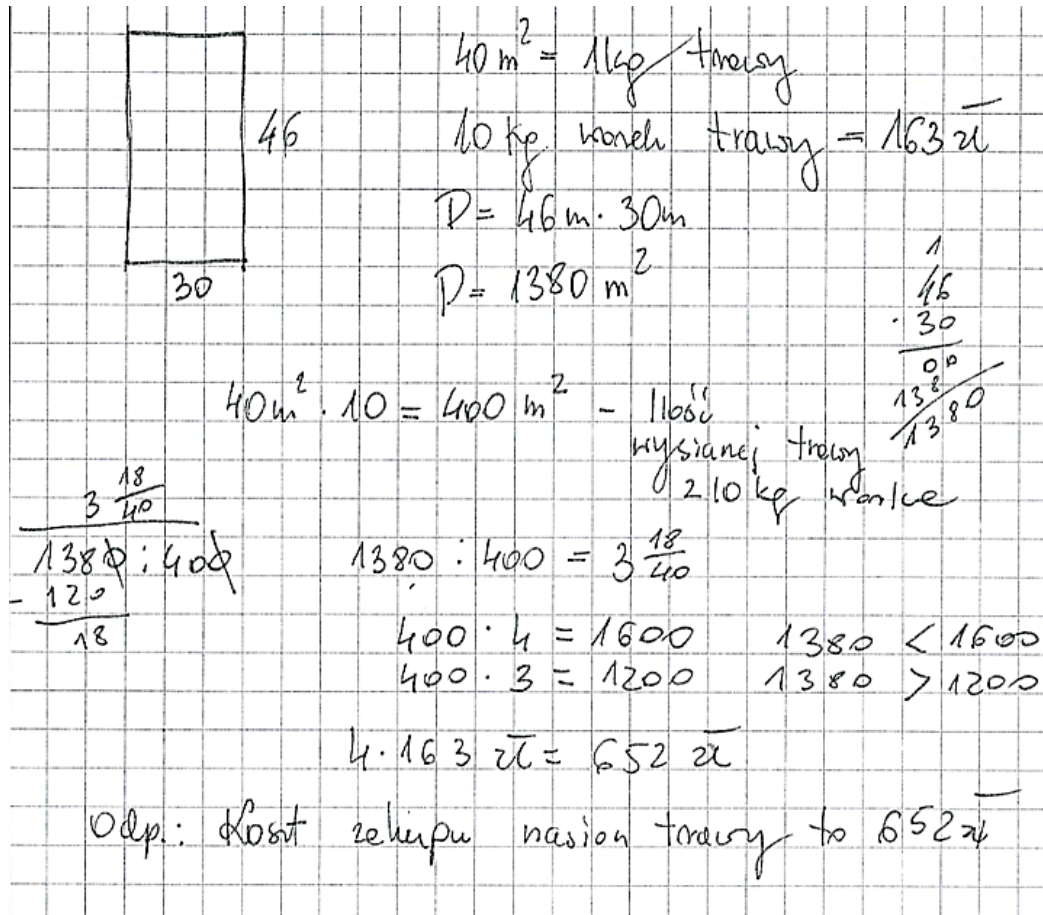 40 m² = 1kg trawy
46
10 kg worek trawy = 163 zł
P = 46 m · 30m
30
P = 1380 m²
1
46
· 30
00
138
1380
40m² · 10 = 400 m² - Ilość
wysianej trawy
z 10 kg worka
3 18/40
1380 : 400
- 120
18
1380 : 400 = 3 18/40
400 · 4 = 1600 1380 < 1600
400 · 3 = 1200 1380 > 1200
4 · 163 zł = 652 zł
Odp.: Koszt zakupu nasion trawy to 652 zł